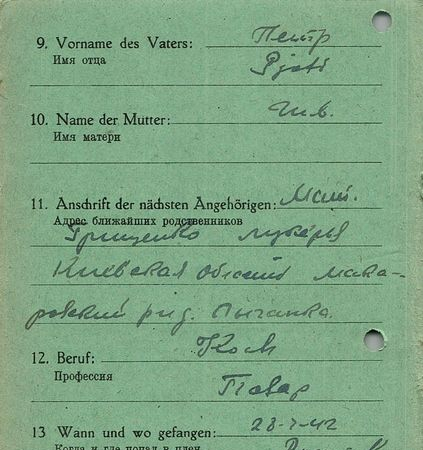 9. Vorname des Vaters: Петр
Имя отца Pjotr
10. Name der Mutter:
Имя матери
11. Anschrift der nächsten Angehörigen: Мать
Адрес ближайших родственников
Грищенко Лукерья
Киевская область Мака-
ровский
12. Beruf: Koch
Профессия Повар
13 Wann und wo gefangen: 23-7-42
Когда и где попал в плен